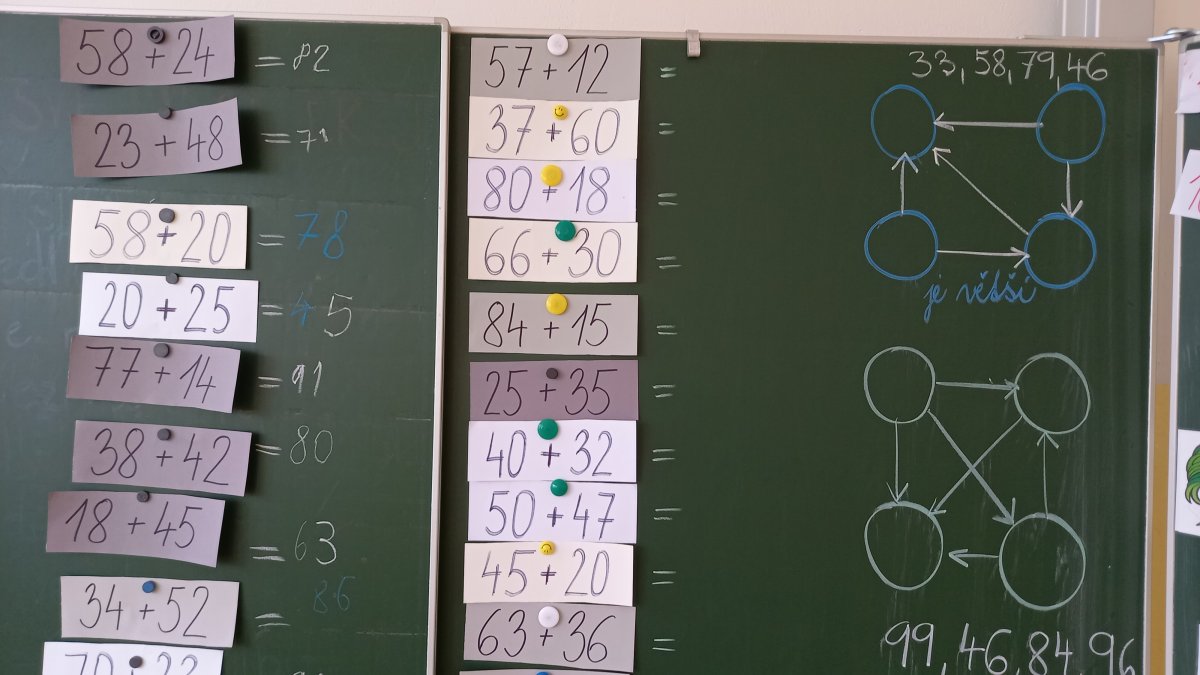 58 + 24 = 82
23 + 48 = 71
58 + 20 = 78
20 + 25 = 45
77 + 14 = 91
38 + 42 = 80
18 + 45 = 63
34 + 52 = 86
57 + 12 =
37 + 60 =
80 + 18 =
66 + 30 =
84 + 15 =
25 + 35 =
40 + 32 =
50 + 47 =
45 + 20 =
63 + 36 =
33, 58, 79, 46
je větší
99, 46, 84, 96